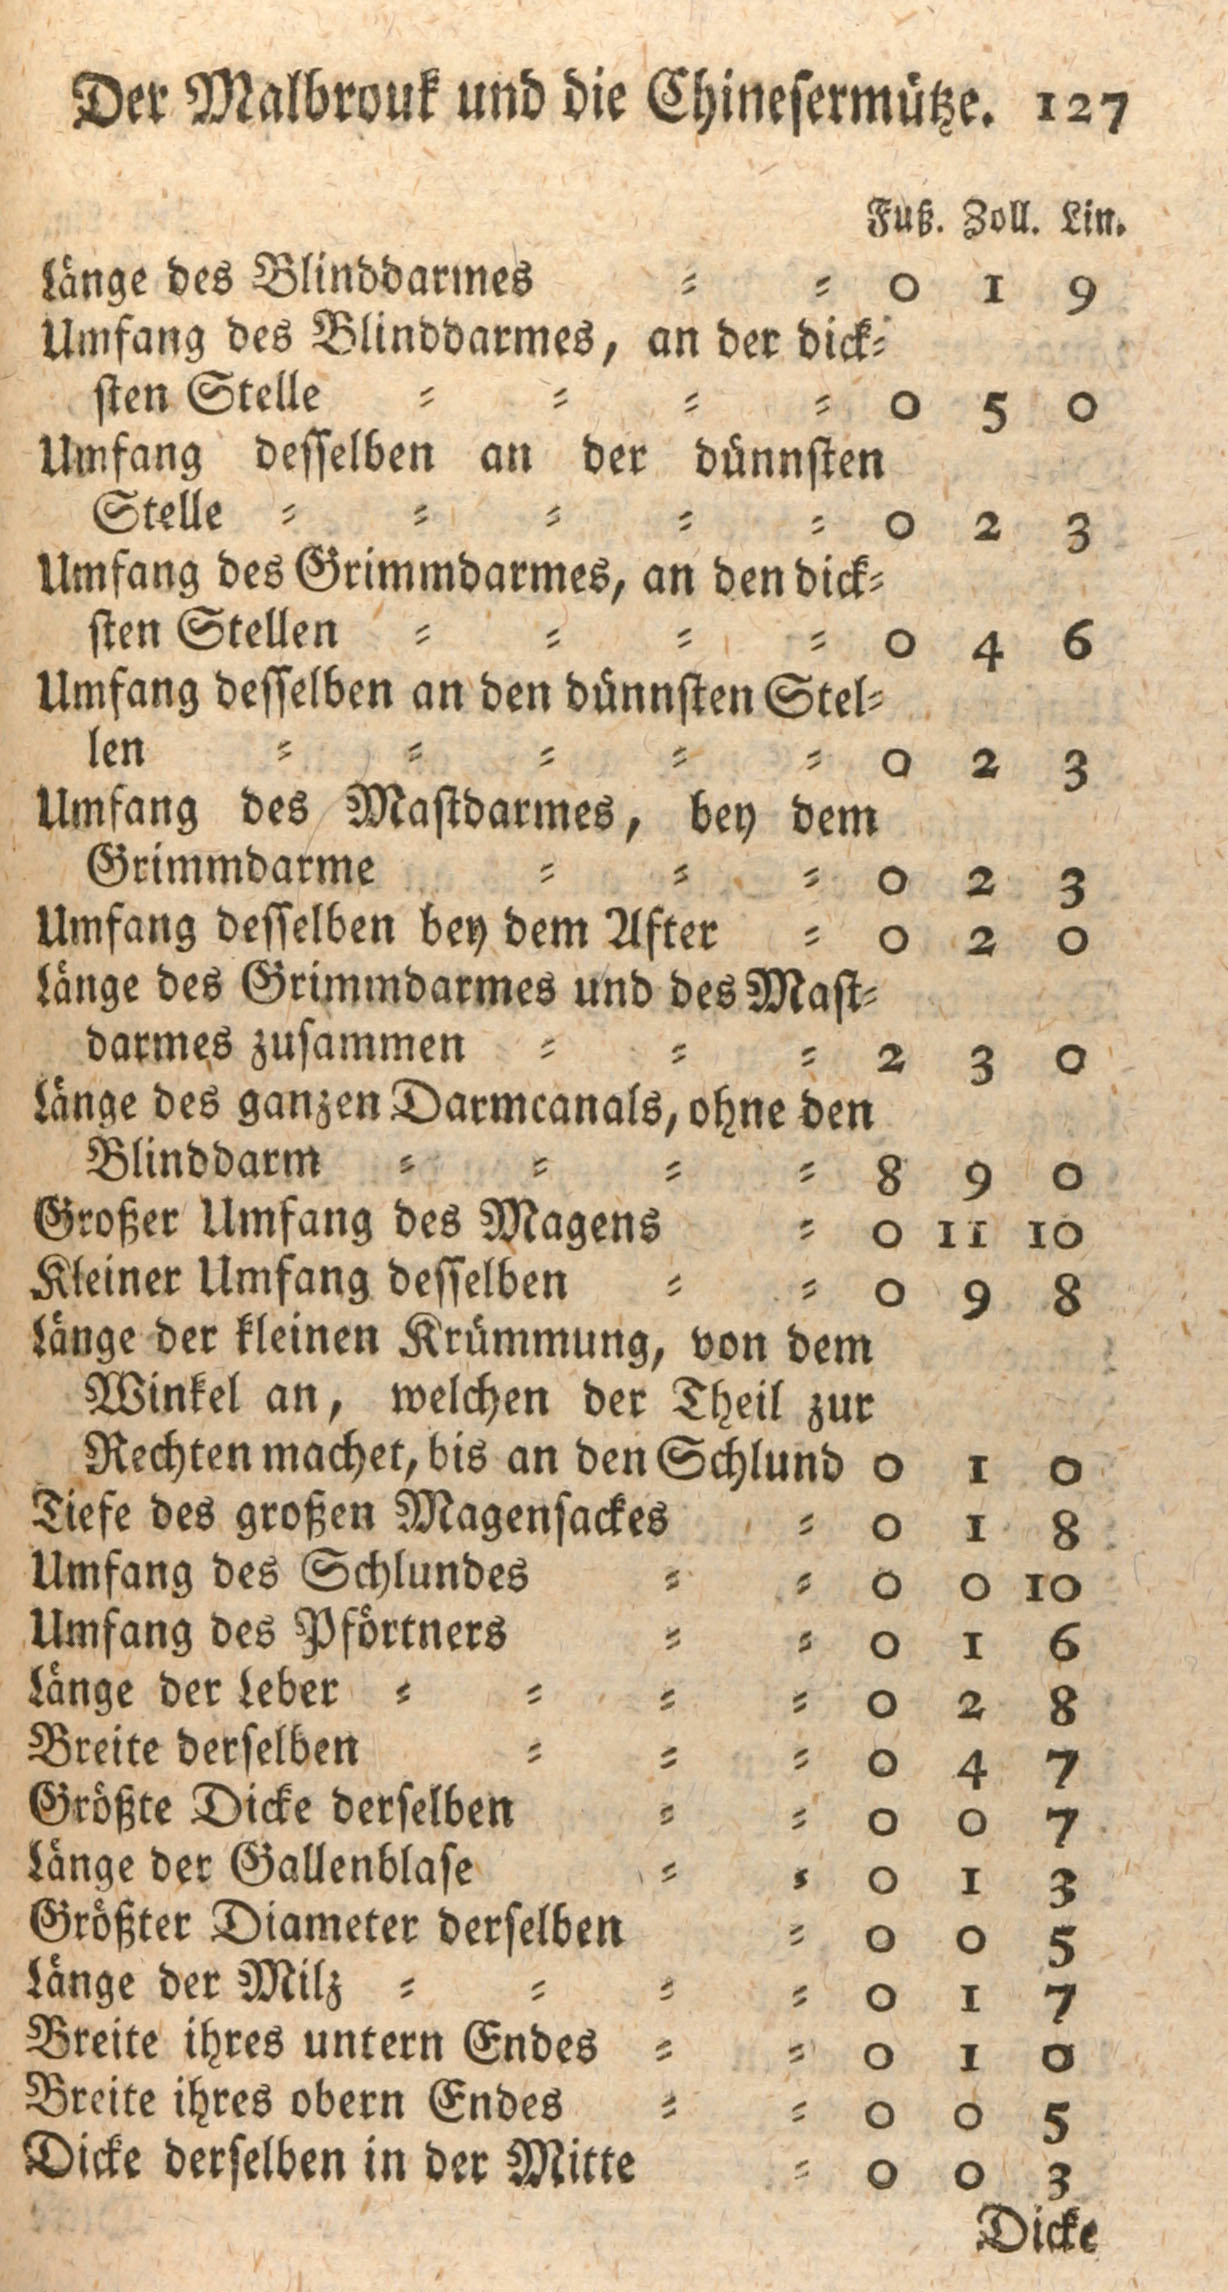 Der Malbrouk und die Chinesermütze. 127
Fuß. Zoll. Lin.
Länge des Blinddarmes = = 0 1 9
Umfang des Blinddarmes, an der dick=
sten Stelle = = = = 0 5 0
Umfang desselben an der dünnsten
Stelle = = = = = 0 2 3
Umfang des Grimmdarmes, an den dick=
sten Stellen = = = = 0 4 6
Umfang desselben an den dünnsten Stel=
len = = = = = 0 2 3
Umfang des Mastdarmes, bey dem
Grimmdarme = = = 0 2 3
Umfang desselben bey dem After = 0 2 0
Länge des Grimmdarmes und des Mast=
darmes zusammen = = = 2 3 0
Länge des ganzen Darmcanals, ohne den
Blinddarm = = = = 8 9 0
Großer Umfang des Magens = 0 11 10
Kleiner Umfang desselben = = 0 9 8
Länge der kleinen Krümmung, von dem
Winkel an, welchen der Theil zur
Rechten machet, bis an den Schlund 0 1 0
Tiefe des großen Magensackes = 0 1 8
Umfang des Schlundes = = 0 0 10
Umfang des Pförtners = = 0 1 6
Länge der Leber = = = = 0 2 8
Breite derselben = = = 0 4 7
Größte Dicke derselben = = 0 0 7
Länge der Gallenblase = = 0 1 3
Größter Diameter derselben = 0 0 5
Länge der Milz = = = = 0 1 7
Breite ihres untern Endes = = 0 1 0
Breite ihres obern Endes = = 0 0 5
Dicke derselben in der Mitte = 0 0 3
Dicke